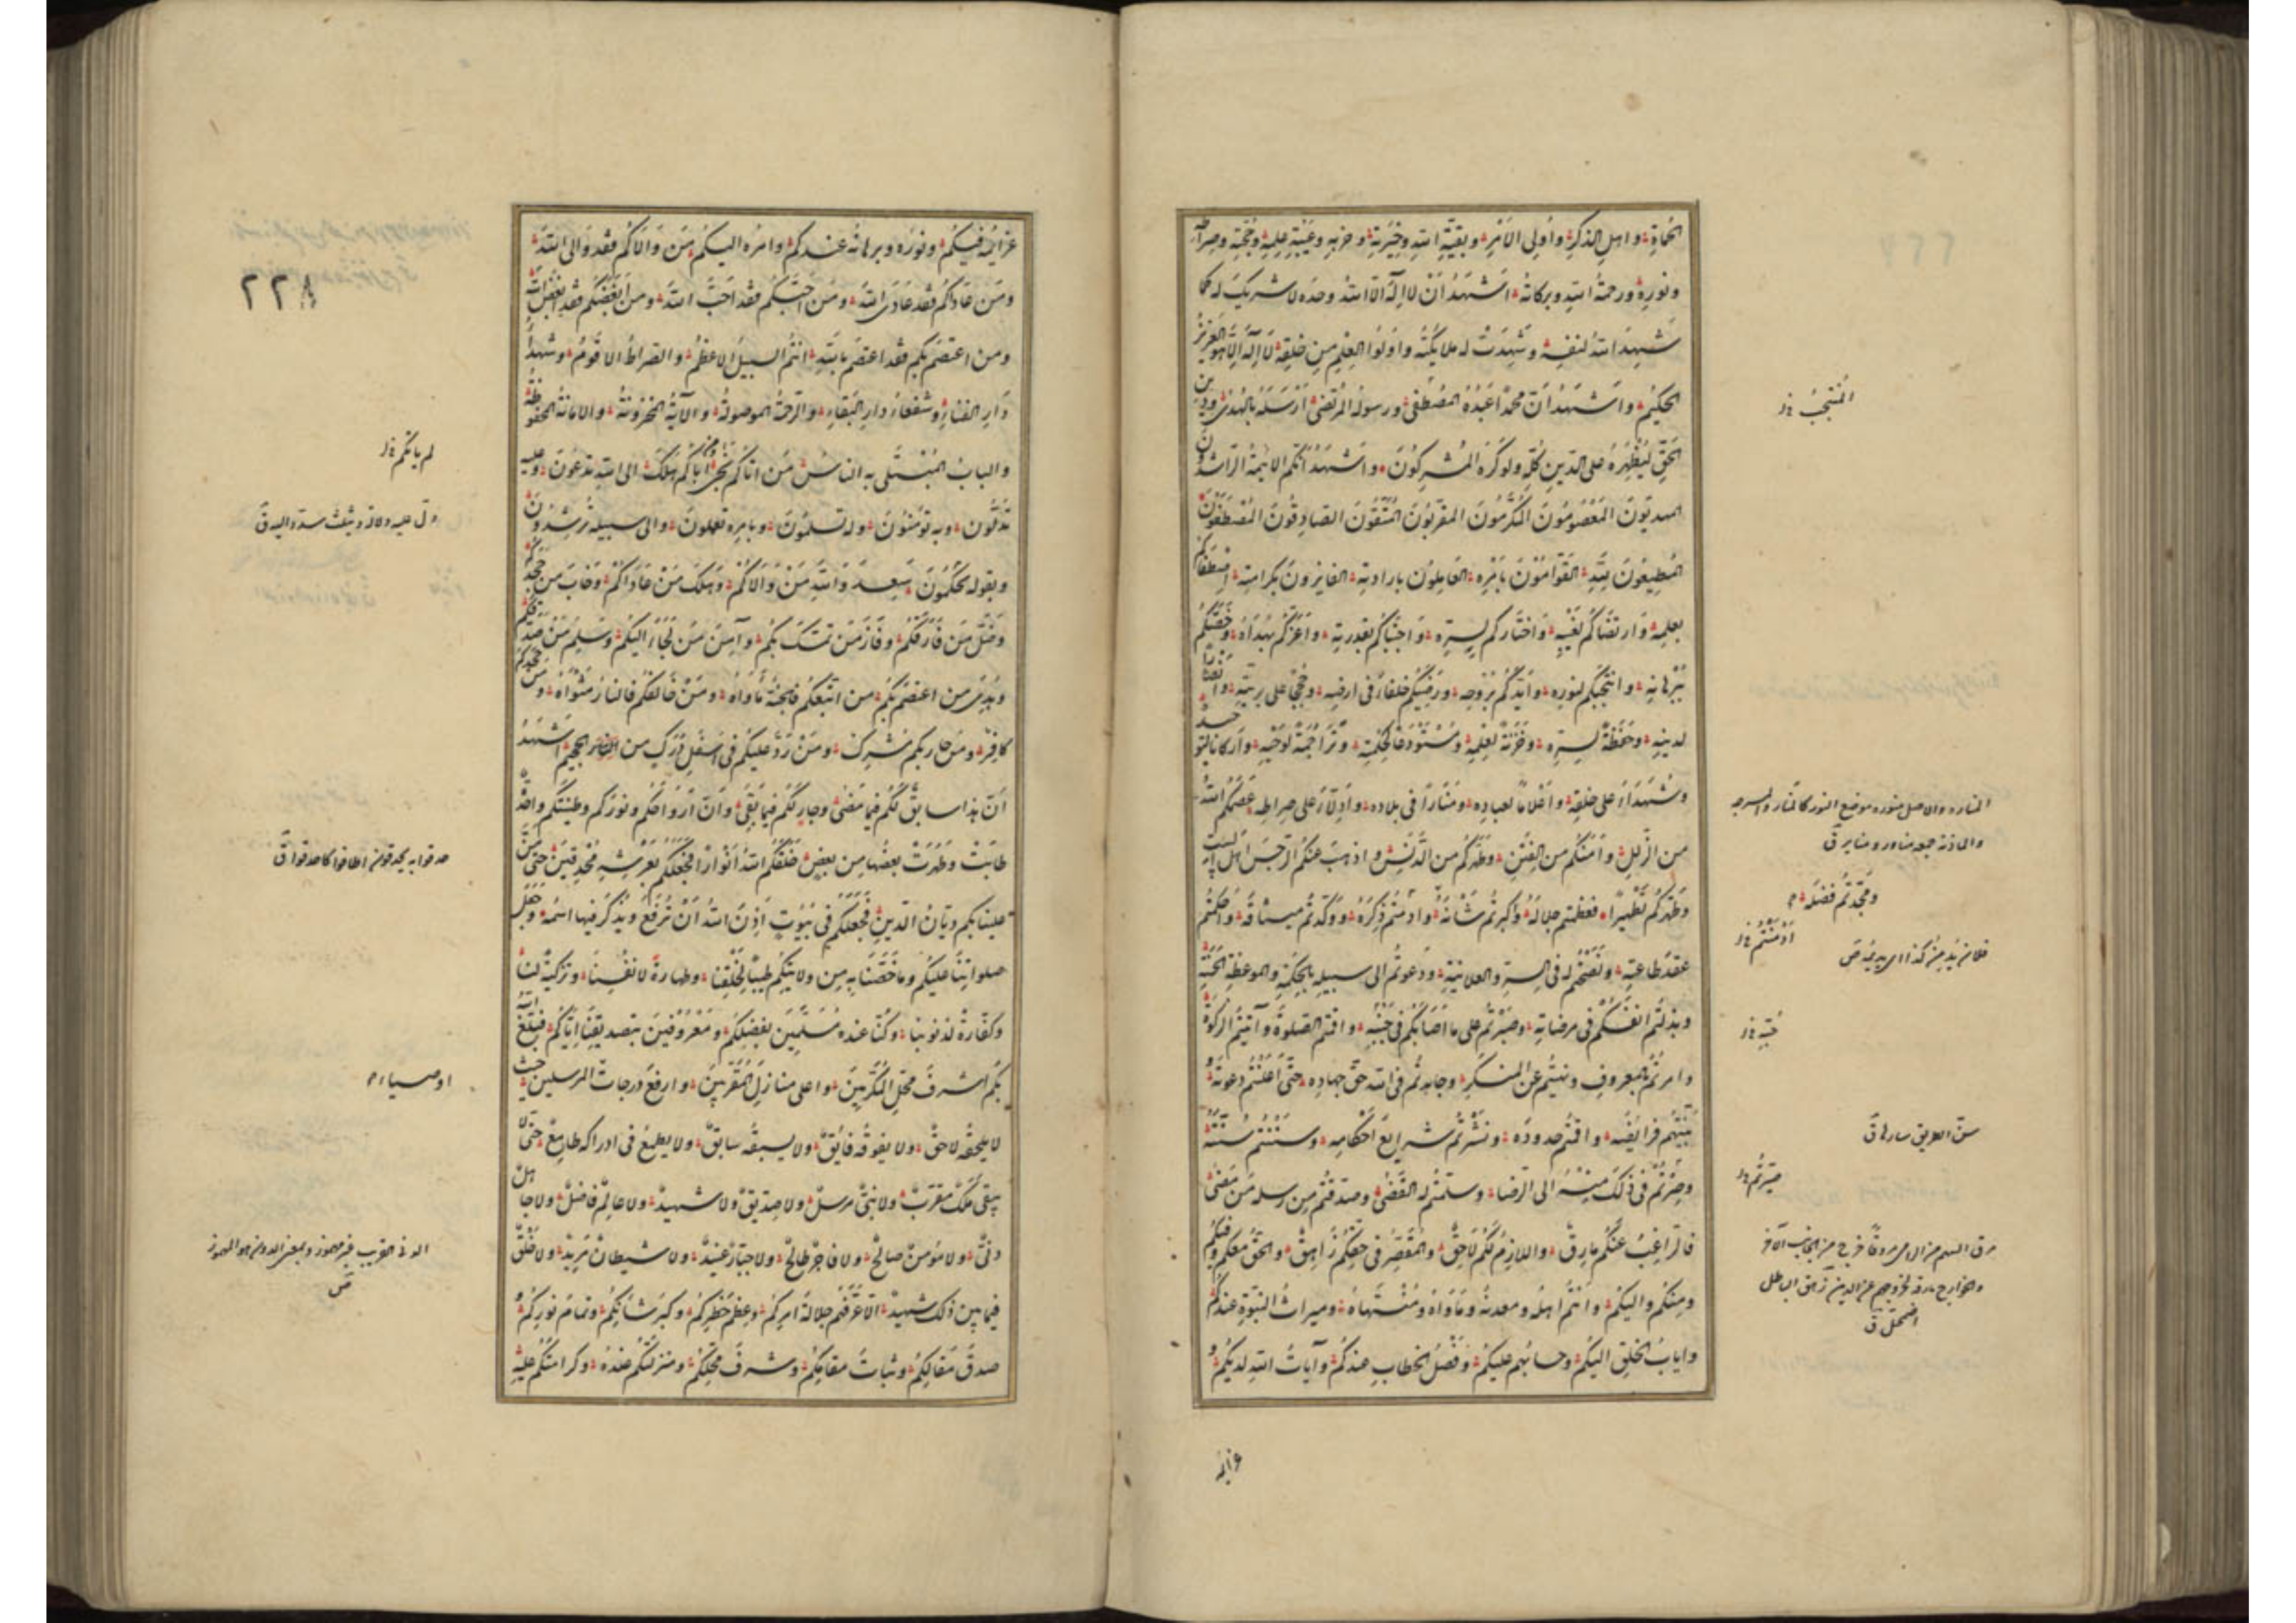 الحماة واهل الذكر واولى الامر وبقية الله وخيرته وحزبه وعيبة علمه وحجته وصراطه
ونوره ورحمة الله وبركاته اشهد ان لا اله الا الله وحده لا شريك له كما
شهد الله لنفسه وشهدت له ملائكته واولوا العلم من خلقه لا اله الا هو العزيز
الحكيم واشهد ان محمدا عبده المصطفى ورسوله المرتضى ارسله بالهدى ودين
الحق ليظهره على الدين كله ولو كره المشركون واشهد انكم الائمة الراشدون
المهديون المعصومون المكرمون المقربون المتقون الصادقون المصطفون
المطيعون لله القوامون بامره العاملون بارادته الفايزون بكرامته اصطفاكم
بعلمه وارتضاكم لغيبه واختاركم لسره واجتباكم بقدرته واعزكم بهداه وخصكم
ببرهانه وانتجبكم لنوره وايدكم بروحه ورضيكم خلفاء فى ارضه وحججا على بريته وانصارا
لدينه وحفظة لسره وخزنة لعلمه ومستودعا لحكمته وتراجمة لوحيه واركانا لتوحيده
وشهداء على خلقه واعلاما لعباده ومنارا فى بلاده وادلاء على صراطه عصمكم الله
من الزلل وامنكم من الفتن وطهركم من الدنس واذهب عنكم الرجس اهل البيت
وطهركم تطهيرا فعظمتم جلاله واكبرتم شانه وادمنتم ذكره ووكدتم ميثاقه واحكمتم
عقد طاعته ونصحتم له فى السر والعلانية ودعوتم الى سبيله بالحكمة والموعظة الحسنة
وبذلتم انفسكم فى مرضاته وصبرتم على ما اصابكم فى جنبه واقمتم الصلوة وآتيتم الزكوة
وامرتم بالمعروف ونهيتم عن المنكر وجاهدتم فى الله حق جهاده حتى اعلنتم دعوته و
بينتم فرايضه واقمتم حدوده ونشرتم شرايع احكامه وسننتم سنته
وصرتم فى ذلك منه الى الرضا وسلمتم له القضى وصدقتم من رسله من مضى
فالراغب عنكم مارق واللازم لكم لاحق والمقصر فى حقكم زاهق والحق معكم وفيكم
ومنكم واليكم وانتم اهله ومعدنه ومأواه ومنتهاه وميراث النبوة عندكم
واياب الخلق اليكم وحسابهم عليكم وفصل الخطاب عندكم وآيات الله لديكم و
عزايمه
المنتجب
المناره والاصل منوره موضع النور كالمنار والمسرجه
والماذنة جمعه مناور ومناير ق
ومجدتم فضله
ادمنتم
فلان يدمن كذا اى يديمه ص
جنبه
سن الطريق سارها ق
صيرتم
مرق السهم من الرمى مروقا خرج من الجانب الآخر
والخوارج مارقة لخروجهم عن الدين زهق الباطل
اضمحل ق
عزايمه فيكم ونوره وبرهانه عندكم وامره اليكم من والاكم فقد والى الله
ومن عاداكم فقد عادى الله ومن احبكم فقد احب الله ومن ابغضكم فقد ابغض الله
ومن اعتصم بكم فقد اعتصم بالله انتم السبيل الاعظم والصراط الاقوم وشهداء
دار الفناء وشفعاء دار البقاء والرحمة الموصولة والآية المخزونة والامانة المحفوظة
والباب المبتلى به الناس من اتاكم نجى ومن اباكم هلك الى الله تدعون وعليه
تدلون وبه تؤمنون وله تسلمون وبامره تعملون والى سبيله ترشدون
وبقوله تحكمون سعد والله من والاكم وهلك من عاداكم وخاب من جحدكم
وضل من فارقكم وفاز من تمسك بكم وآمن من لجاء اليكم وسلم من صدقكم
وهدى من اعتصم بكم من اتبعكم فالجنة مأواه ومن خالفكم فالنار مثواه ومن جحدكم
كافر ومن حاربكم مشرك ومن رد عليكم فى اسفل درك من الجحيم اشهد
ان هذا سابق لكم فيما مضى وجار لكم فيما بقى وان ارواحكم ونوركم وطينتكم واحدة
طابت وطهرت بعضها من بعض خلقكم الله انوارا فجعلكم بعرشه محدقين حتى من
علينا بكم ديان الدين فجعلكم فى بيوت اذن الله ان ترفع ويذكر فيها اسمه وجعل
صلواتنا عليكم وما خصنا به من ولايتكم طيبا لخلقنا وطهارة لانفسنا وتزكية لنا
وكفارة لذنوبنا وكنا عنده مسلمين بفضلكم ومعروفين بتصديقنا اياكم فبلغ الله
بكم اشرف محل المكرمين واعلى منازل المقربين وارفع درجات المرسلين حيث
لا يلحقه لاحق ولا يفوقه فايق ولا يسبقه سابق ولا يطمع فى ادراكه طامع حتى لا
يبقى ملك مقرب ولا نبى مرسل ولا صديق ولا شهيد ولا عالم فاضل ولا جاهل
دنى ولا مؤمن صالح ولا فاجر طالح ولا جبار عنيد ولا شيطان مريد ولا خلق
فيما بين ذلك شهيد الا عرفهم جلالة امركم وعظم خطركم وكبر شانكم وتمام نوركم و
صدق مقالكم وثبات مقامكم وشرف محلكم ومنزلتكم عنده وكرامتكم عليه
٢٢٨
لم ياتكم
حدقوا به يحدقون اطافوا كاحدقوا ق
اوصياء
الدنى القريب غير مهموز وبمعنى الدون هو المهموز
ص